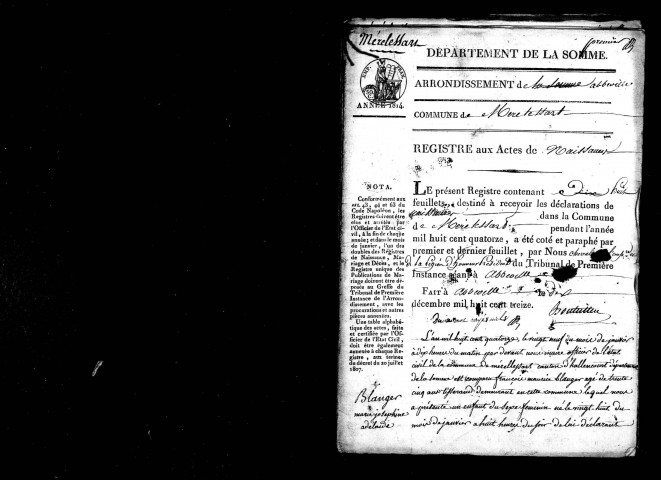 Mérélessart
premier
DÉPARTEMENT DE LA SOMME.
ANNÉE 1814.
ARRONDISSEMENT de abbeville
COMMUNE de Merelessart
REGISTRE aux Actes de Naissances
NOTA.
Conformément aux
art. 43, 46 et 63 du
Code Napoléon, les
Registres doivent être
clos et arrêtés par
l'Officier de l'État civil,
à la fin de chaque
année; et dans le mois
de janvier, l'un des
doubles des Registres
de Naissance, Mariage
et Décès, et le
Registre unique des
Publications de Mariage
doivent être déposés
au Greffe du
Tribunal de Première
Instance de l'Arrondissement,
avec les
procurations et autres
pièces annexées.
Une table alphabétique
des actes, faite
et certifiée par l'Officier
de l'État Civil,
doit être également
annexée à chaque Registre,
aux termes
du décret du 20 juillet
1807.
LE présent Registre contenant
feuillets, destiné à recevoir les déclarations de
naissances dans la Commune
de Merelessart pendant l'année
mil huit cent quatorze, a été coté et paraphé par
premier et dernier feuillet, par Nous
la Légion d'honneur Président du Tribunal de Première
Instance séant à abbeville
FAIT à abbeville le
décembre mil huit cent treize.
L'an mil huit cent quatorze le vingt neuf du mois de janvier
à dix heures du matin par devant nous maire officier de l'état
civil de la commune de merellessart canton d'hallencourt département
de la somme est comparu françois maurice Blanger agé de trente
cinq ans tisserand demeurant en cette commune lequel nous
a présenté un enfant du sexe féminin né le vingt huit du
mois de janvier a huit heures du soir de lui déclarant
Blanger
marie josephine
adelaide